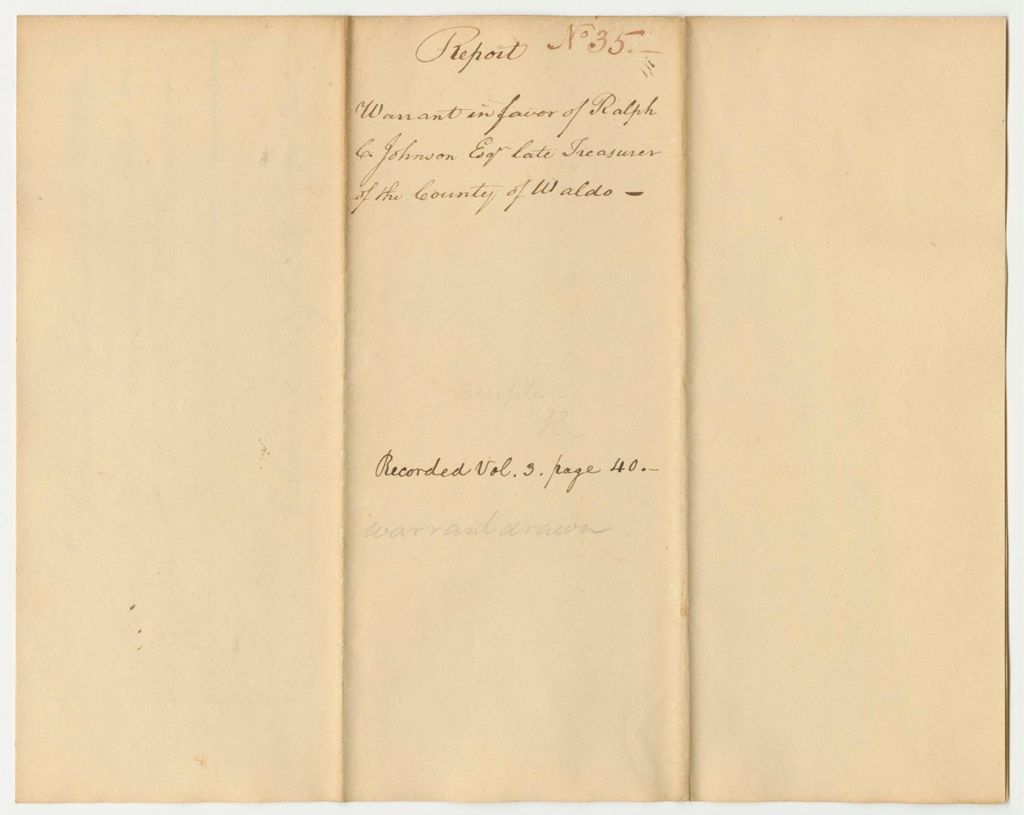 Report No 35.—
Warrant in favor of Ralph
C. Johnson Esqr late Treasurer
of the County of Waldo —
Recorded Vol. 3. page 40.—
warrant drawn